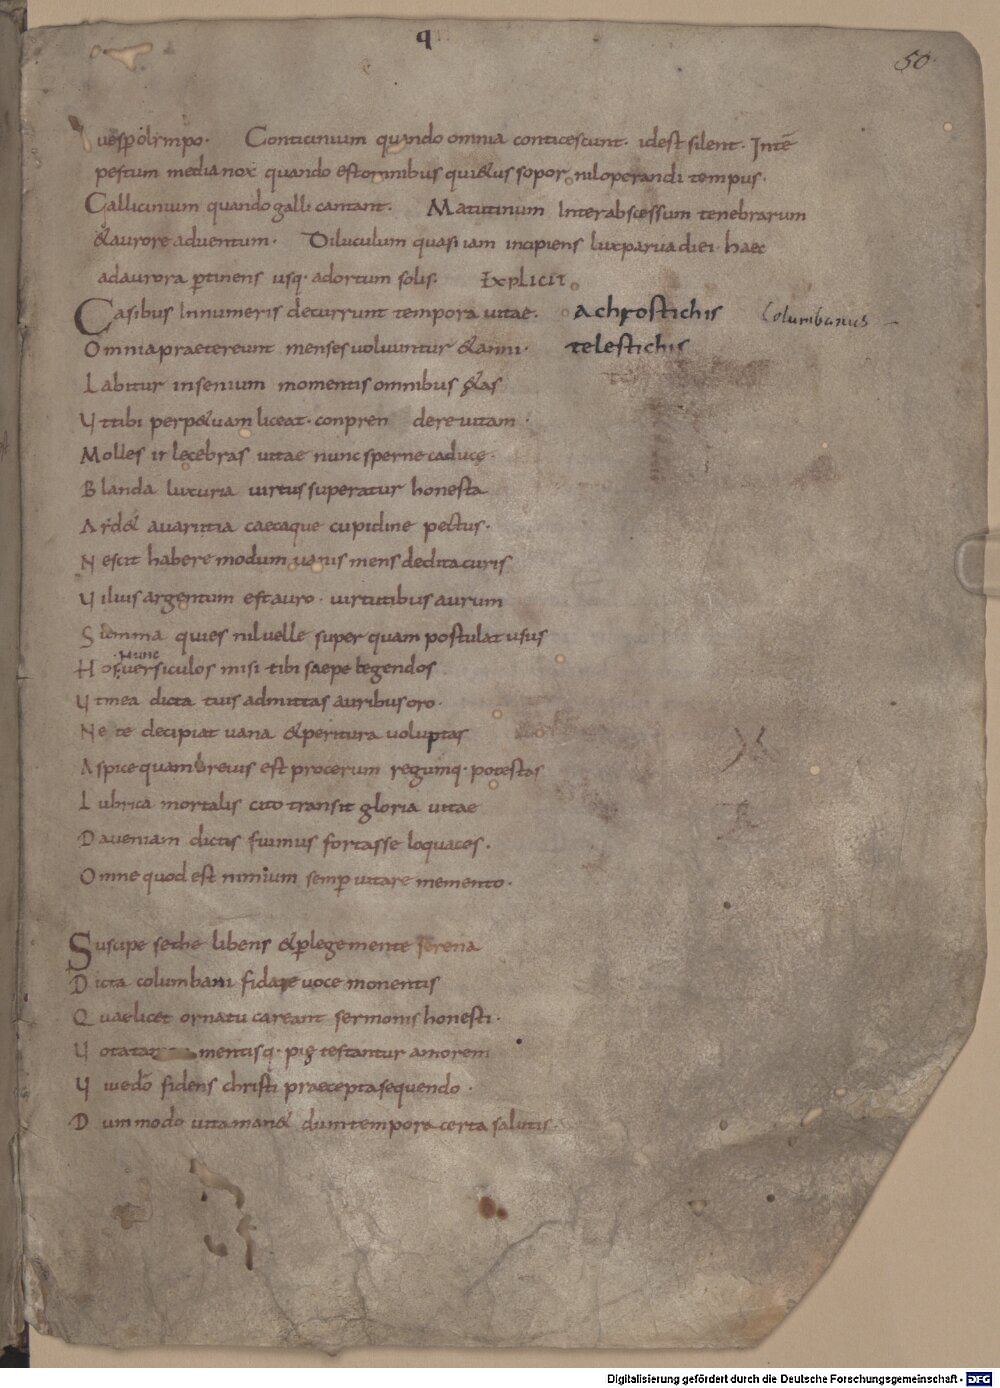 q
50
uesp olimpo. Conticinium quando omnia conticescunt. idest silent. Intē
pestum media nox quando est omnibus qui&us sopor nil operandi tempus.
Gallicinium quando galli cantant. Matutinum Inter abscessum tenebrarum
& aurore aduentum. Diluculum quasi iam incipiens lux parua diei. haec
ad aurora ptinens usq. ad ortum solis. Explicit
Casibus Innumeris decurrunt tempora uitae. achrostichis Columbanus
Omnia praetereunt menses uoluuntur & anni. telestichis
Labitur in senium momentis omnibus &as
Vt tibi perp&uam liceat. conpren dere uitam.
Molles inlecebras uitae nunc sperne caduce.
Blanda luxuria uirtus superatur honesta
Ard& auaritia caecaque cupidine pectus.
Nescit habere modum uanis mens dedita curis
Vilius argentum est auro. uirtutibus aurum
Summa quies nil uelle super quam postulat usus
Hos nunc uersiculos misi tibi saepe legendos
Vt mea dicta tuis admittas auribus oro.
Ne te decipiat uana & peritura uoluptas
Aspice quam breuis est procerum regumq. potestas
Lubrica mortalis cito transit gloria uitae
Da ueniam dictis fuimus fortasse loquaces.
Omne quod est nimium semp uitare memento.
Suscipe sethe libens & plege mente serena
Dicta columbani fida te uoce monentis
Quae licet ornatu careant sermonis honesti.
Vota mentisq. pię testantur amorem
Viue dō fidens christi praecepta sequendo.
Dum modo uita man& dum tempora certa salutis.
Digitalisierung gefördert durch die Deutsche Forschungsgemeinschaft - DFG